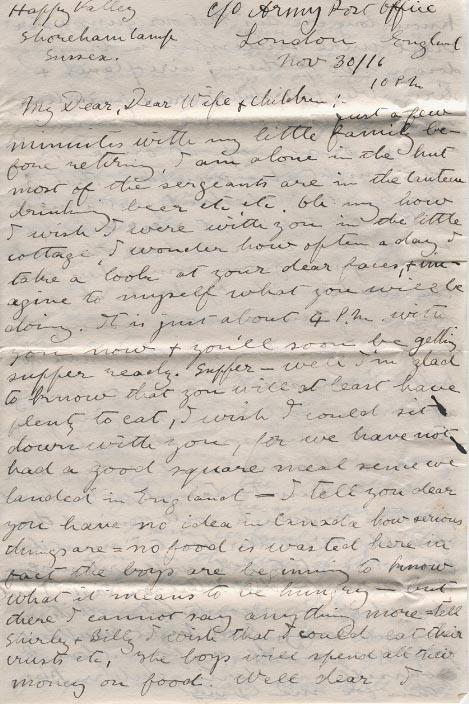 Happy Valley
Shoreham Camp
Sussex.
c/o Army Post Office
London England
Nov 30/16
10 P.M.
My Dear, Dear Wife & Children;- Just a few
minuites with my little family be-
fore retiring, I am alone in the hut
most of the sergeants are in the Canteen
drinking beer etc etc. Oh my how
I wish I were with you in the little
cottage, I wonder how often a day I
take a look at your dear faces, & im-
agine to myself what you will be
doing. It is just about 4 P.M. with
you now & you'll soon be getting
supper ready. Supper - well I'm glad
to know that you will at least have
plenty to eat, I wish I could sit
down with you, for we have not
had a good square meal since we
landed in England - I tell you dear
you have no idea in Canada how serious
things are = no food is wasted here in
fact the boys are beginning to know
what it means to be hungry - but
there I cannot say anything more = tell
Shirly & Billy I wish that I could eat their
crusts etc, the boys will spend all their
money on food. Well dear I